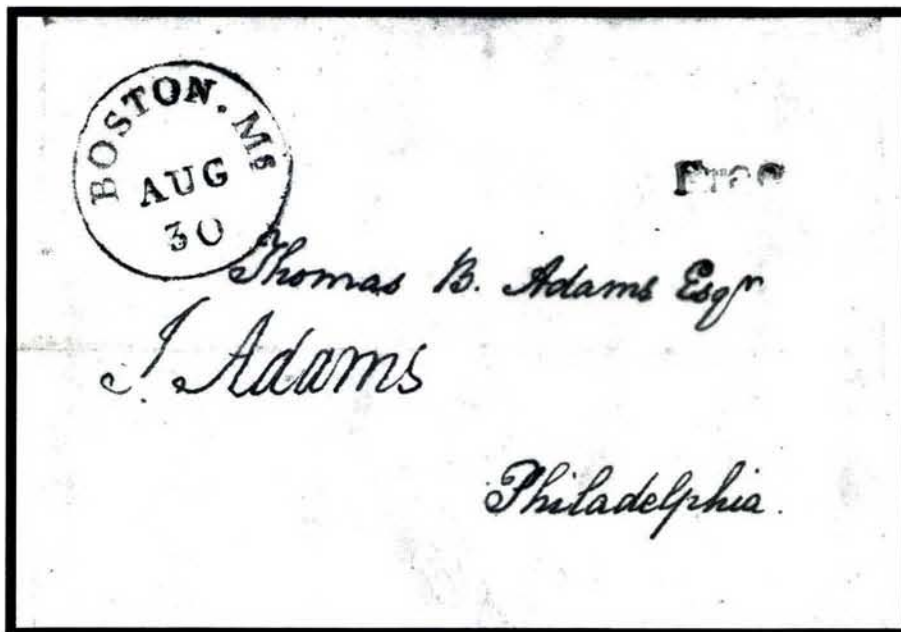 BOSTON. Ms
AUG
30
Free
Thomas B. Adams Esqr
J. Adams
Philadelphia.